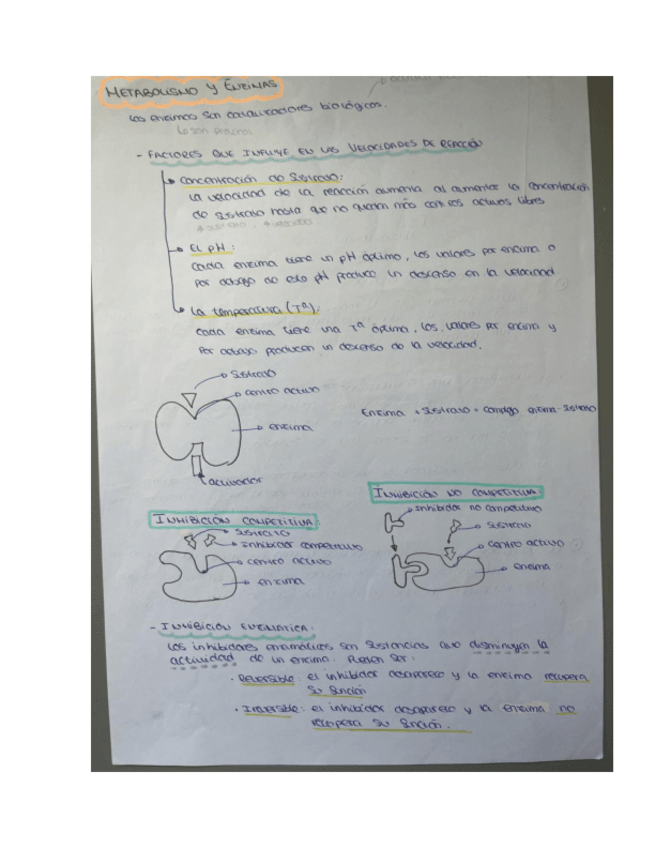 METABOLISMO Y ENZIMAS
Los enzimas son catalizadores biológicos.
Lo son proteínas
- FACTORES QUE INFLUYE EN LAS VELOCIDADES DE REACCIÓN
Concentración de Sustrato:
La velocidad de la reacción aumenta al aumentar la concentración
de sustrato hasta que no quedan más centros activos libres
El pH:
Cada enzima tiene un pH óptimo, los valores por encima o
por debajo de ese pH produce un descenso en la velocidad
La temperatura (Tª):
Cada enzima tiene una Tª óptima, los valores por encima y
Por debajo producen un descenso de la velocidad.
Sustrato
centro activo
enzima
Enzima + sustrato = complejo enzima-sustrato
activador
INHIBICIÓN NO COMPETITIVA:
inhibidor no competitivo
sustrato
centro activo
enzima
INHIBICIÓN COMPETITIVA:
SUSTRATO
inhibidor competitivo
centro activo
enzima
- INHIBICIÓN ENZIMÁTICA:
Los inhibidores enzimáticos son sustancias que disminuyen la
actividad de un enzima. Pueden ser:
· Reversible: el inhibidor desaparece y la enzima recupera
su función
· Irreversible: el inhibidor desaparece y la enzima no
recupera su función.